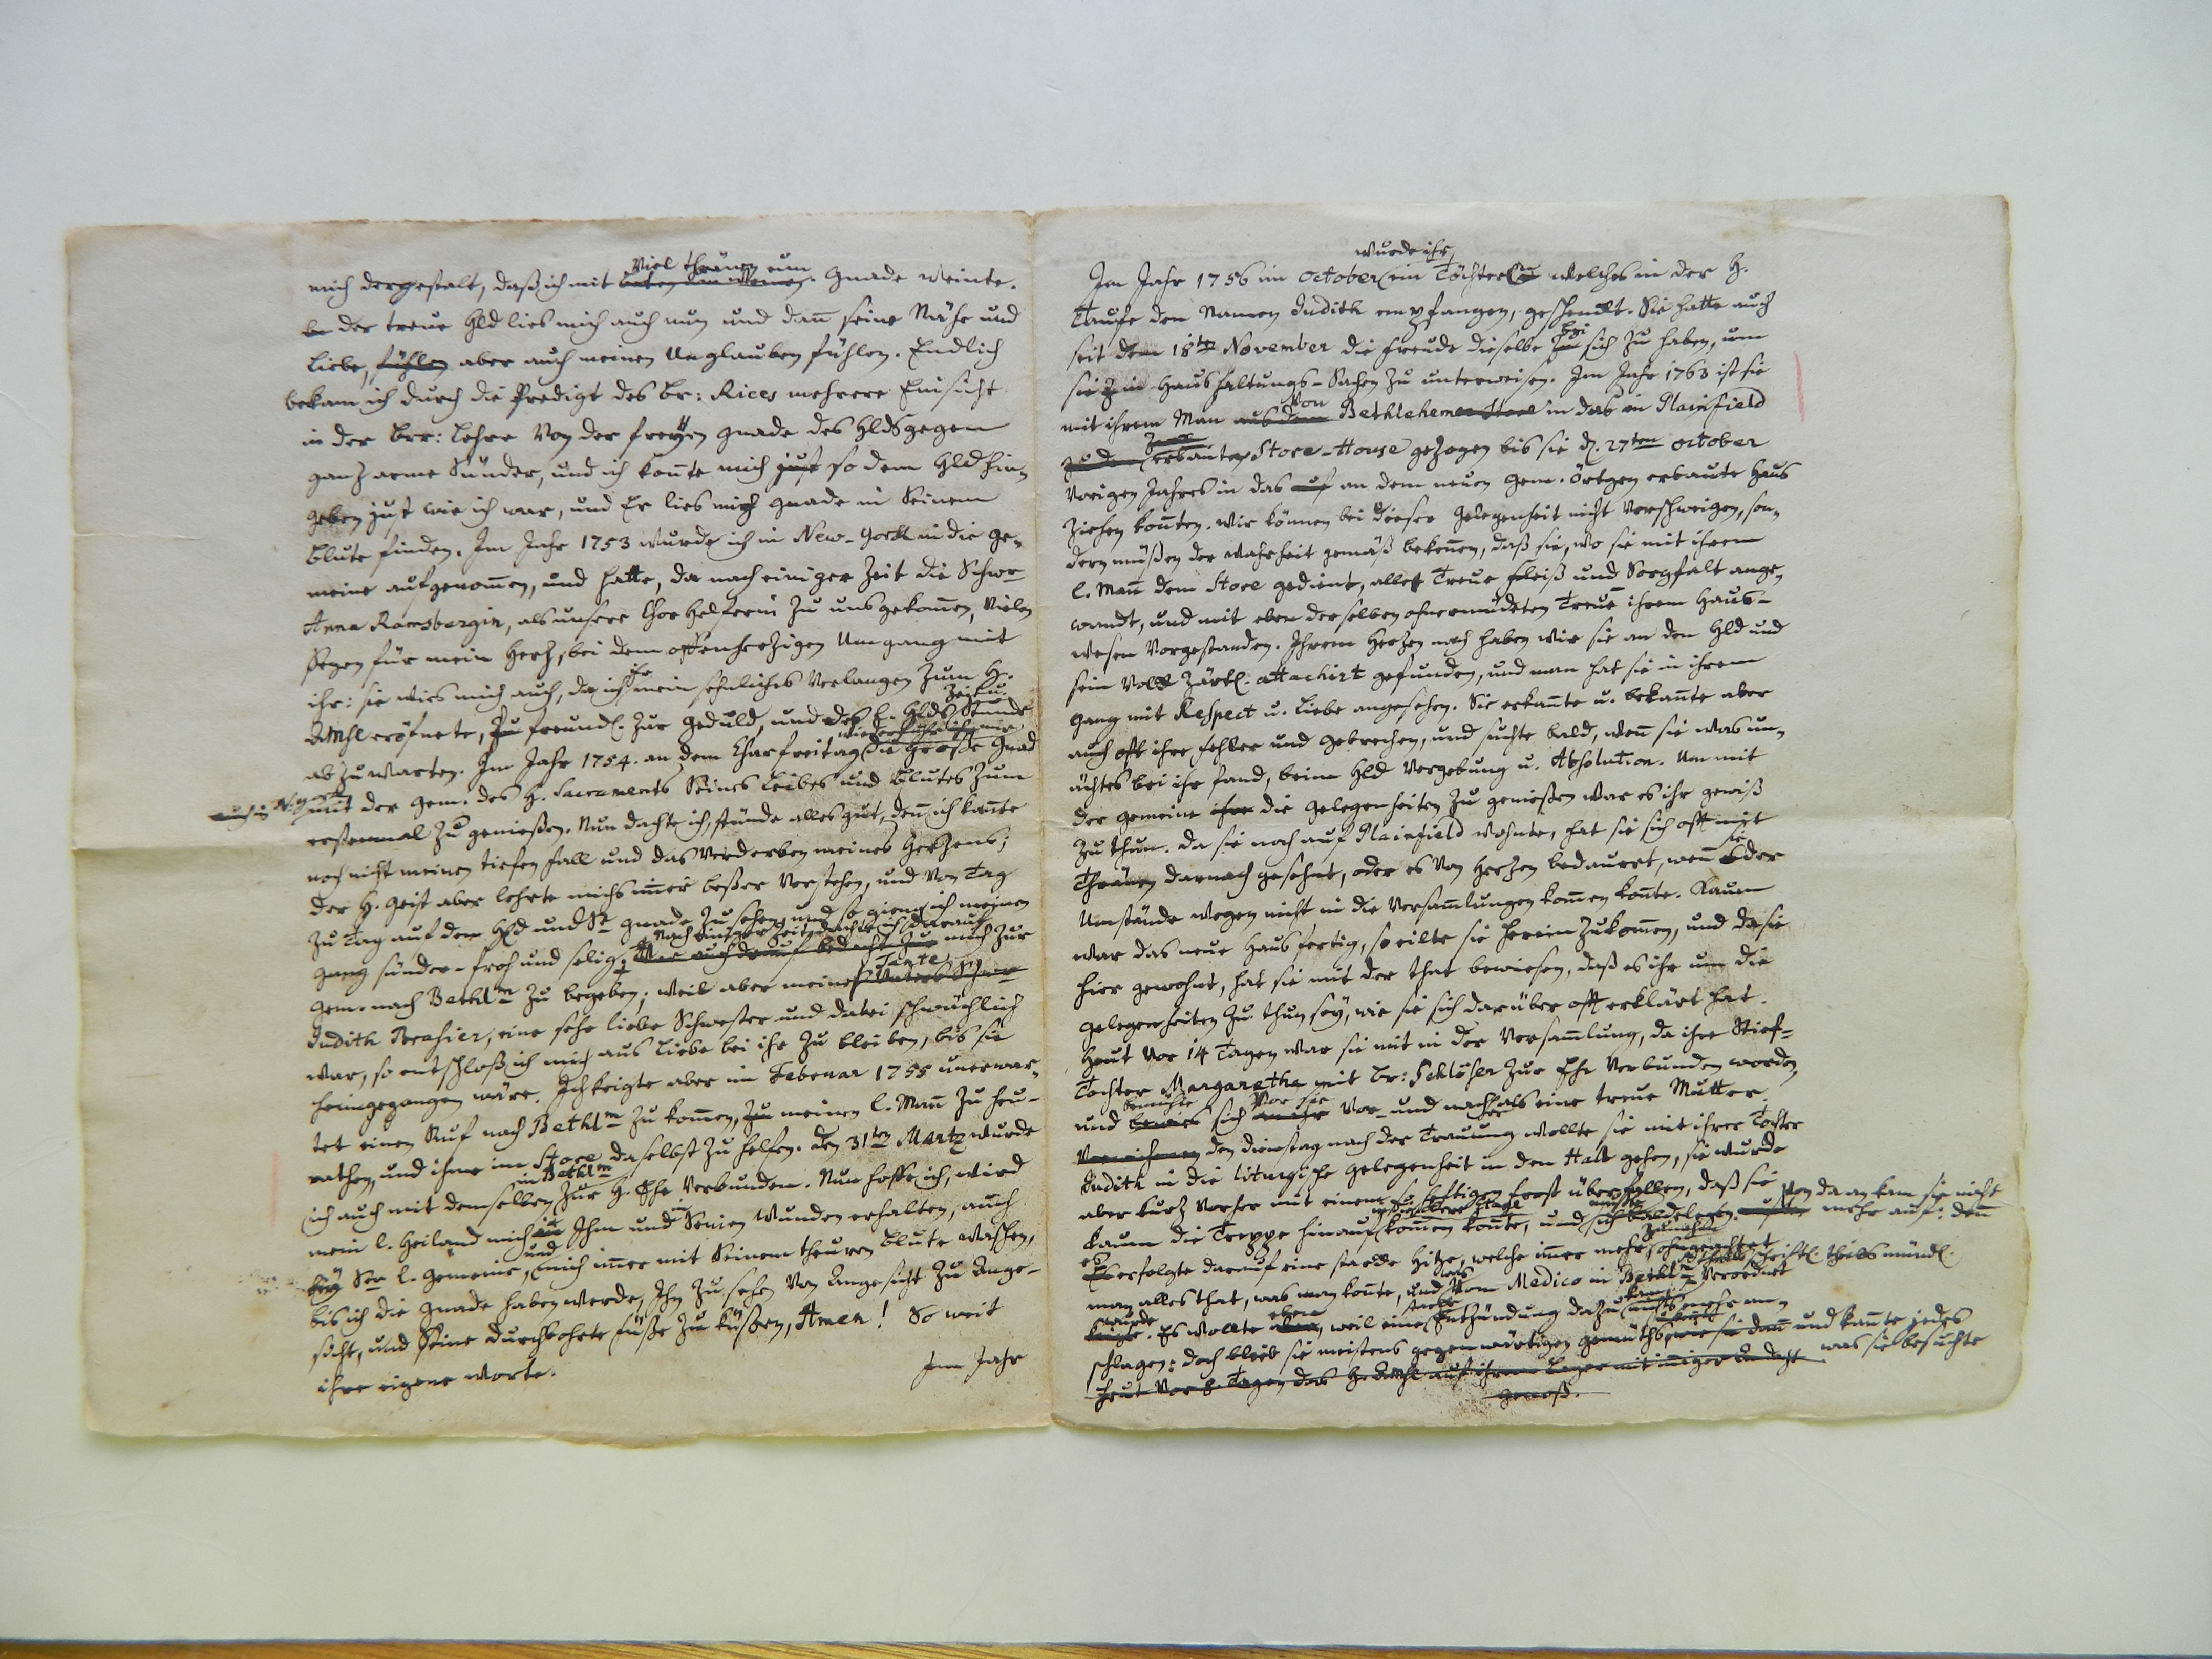 mich dergestalt, daß ich mit viel thränen um Gnade weinte.
der treue Hld lies mich auch nun und dan̄ seine Nähe und
Liebe, fühlen aber auch meinen Unglauben fühlen. Endlich
bekam ich durch die Predigt des Br: Rices mehrere Einsicht
in der Brr: Lehre von der freyen Gnade des Hlds gegen
ganz arme Sünder, und ich kon̄te mich just so dem Hld hin-
geben just wie ich war, und Er lies mich Gnade in Seinem
Blute finden. Im Jahr 1753 wurde ich in New-York in die Ge-
meine aufgenom̄en, und hatte, da nach einiger Zeit die Schwr
Anna Ramsbergin, als unsere Chor Helferin zu uns gekom̄en, vielen
Segen für mein Herz, bei dem offenherzigen Umgang mit
ihr: sie wies mich auch, da ich ihr mein sehnliches Verlangen zum H.
AMhl eröfnete, zu freundl. zur Geduld, und des l. Hlds Zeit u. Stunde
abzuwarten. Im Jahr 1754. an dem Charfreitag wiederfuhr mir die Große Gnad
auch in N. York mit der Gem. des H. Sacraments Seines Leibes und Blutes zum
erstenmal zu genießen. Nun dachte ich, stünde alles gut, den̄ ich kan̄te
noch nicht meinen tiefen Fall und das Verderben meines Herzens;
der H. Geist aber lehrte michs im̄er beßer verstehen, und von Tag
zu Tag auf den Hld und Se Gnade zu sehen, und so gieng ich meinen
Gang sünder-froh und selig; Nach einiger Zeit dachte ich darauf War auch darauf bedacht zur mich zur
Gem. nach Bethlm zu begeben; weil aber meines Vaters Schwr Tante
Judith Brasier, eine sehr liebe Schwester und dabei schwächlich
war, so entschloß ich mich aus Liebe bei ihr zu bleiben, bis sie
heimgegangen wäre. Ich kriegte aber im Februar 1755 unerwar-
tet einen Ruf nach Bethlm zu kom̄en, zu meinen l. Man̄ zu heu-
rathen, und ihme im Store daselbst zu helfen. Den 31ten Martz wurde
ich auch mit demselben in Bethlm zur H. Ehe verbunden. Nun hoffe ich, wird
mein l. Heiland mich in Ihm und in Seinen Wunden erhalten, auch
bey Sr l. Gemeine, und mich im̄er mit Seinem theuren Blute waschen,
bis ich die Gnade haben werde, Ihn zu sehen von Angesicht zu Ange-
sicht, und Seine durchbohrte Füße zu küßen, Amen! So weit
ihre eigene Worte.
Im Jahr
Im Jahr 1756 im October wurde ihr ein Töchterlein welches in der H.
Taufe den Namen Judith empfangen, geschenckt. Sie hatte auch
seit dem 18ten November die Freude dieselbe bei sich zu haben, um
sie in Haushaltungs-Sachen zu unterweisen. Im Jahr 1763 ist sie
mit ihrem Man̄ aus dem von Bethlehemer Store in das in Plainfield
erbauten Store-House gezogen bis sie d. 27ten October
vorigen Jahres in das auf an dem neuen Gem. Örtgen erbaute Haus
ziehen kon̄ten. Wir können bei dieser Gelegenheit nicht verschweigen, son-
dern müßen der Wahrheit gemäß beken̄en, daß sie, wo sie mit ihrem
l. Man̄ dem Store gedient, alle Treue Fleiß und Sorgfalt ange-
wandt, und mit eben derselben ohnermüdeten Treue ihrem Haus-
wesen vorgestanden. Ihrem Herzen nach haben wir sie an den Hld und
sein Volck zärtl. attachirt gefunden, und man hat sie in ihrem
Gang mit Respect u. Liebe angesehen. Sie erkan̄te u. bekan̄te aber
auch oft ihre Fehler und Gebrechen, und suchte bald, wen̄ sie was un-
ächtes bei ihr fand, beim Hld Vergebung u. Absolution. Um mit
der Gemeine ihre die Gelegenheiten zu genießen war es ihr gewiß
zu thun. Da sie noch auf Plainfield wohnte, hat sie sich oft mit
Thränen darnach gesehnt, oder es von Herzen bedauret, wen̄ sie der
Umstände wegen nicht in die Versam̄lungen kom̄en kon̄te. Kaum
war das neue Haus fertig, so eilte sie herein zukom̄en, und da sie
hier gewohnt, hat sie mit der That bewiesen, daß es ihr um die
Gelegenheiten zu thun sey, wie sie sich darüber oft erklärt hat.
Heut vor 14 Tagen war sie mit in der Versam̄lung, da ihre Stief-
Tochter Margaretha mit Br: Schlößer zur Ehe verbunden worden,
und bewies bemühte sich vor sie vor- und nachher als eine treue Mutter.
den Dienstag nach der Trauung wollte sie mit ihrer Tochter
Judith in die Liturgische Gelegenheit in den Saal gehen, sie wurde
aber kurz vorher mit einem so heftigen Frost überfallen, daß sie
kaum die Treppe hinauf kom̄en kon̄te, und sich bald legen mußte. Von da an kam sie nicht mehr auf: den̄
es erfolgte darauf eine starcke Hitze, welche im̄er mehr zunahm ohngeachtet
man alles that, was man kon̄te, und was vom Medico in Bethlm theils schriftl. theils mündl. verordnet
wurde. Es wollte aber, weil eine starke Entzündung dazu kam nichts mehr an-
schlagen: doch blieb sie meistens gegenwärtigen Gemüths, und kan̄te jedes was sie besuchte
heut vor 8 Tagen das H. AMhl auf ihrem Lager mit in̄iger Andacht
genoß.